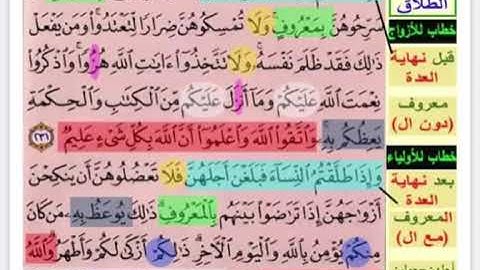 سَرِّحُوهُنَّ بِمَعْرُوفٍ وَلَا تُمْسِكُوهُنَّ ضِرَارًا لِّتَعْتَدُوا۟ وَمَن يَفْعَلْ
ذَٰلِكَ فَقَدْ ظَلَمَ نَفْسَهُۥ وَلَا تَتَّخِذُوٓا۟ ءَايَٰتِ ٱللَّهِ هُزُوًا وَٱذْكُرُوا۟
نِعْمَتَ ٱللَّهِ عَلَيْكُمْ وَمَآ أَنزَلَ عَلَيْكُم مِّنَ ٱلْكِتَٰبِ وَٱلْحِكْمَةِ
يَعِظُكُم بِهِۦ وَٱتَّقُوا۟ ٱللَّهَ وَٱعْلَمُوٓا۟ أَنَّ ٱللَّهَ بِكُلِّ شَىْءٍ عَلِيمٌ ٢٣١
وَإِذَا طَلَّقْتُمُ ٱلنِّسَآءَ فَبَلَغْنَ أَجَلَهُنَّ فَلَا تَعْضُلُوهُنَّ أَن يَنكِحْنَ
أَزْوَٰجَهُنَّ إِذَا تَرَٰضَوْا۟ بَيْنَهُم بِٱلْمَعْرُوفِ ذَٰلِكَ يُوعَظُ بِهِۦ مَن كَانَ
مِنكُمْ يُؤْمِنُ بِٱللَّهِ وَٱلْيَوْمِ ٱلْءَاخِرِ ذَٰلِكُمْ أَزْكَىٰ لَكُمْ وَأَطْهَرُ وَٱللَّهُ
الطلاق
خطاب للأزواج
قبل نهاية
العدة
معروف
(دون ال)
خطاب للأولياء
بعد نهاية
العدة
المعروف
(مع ال)